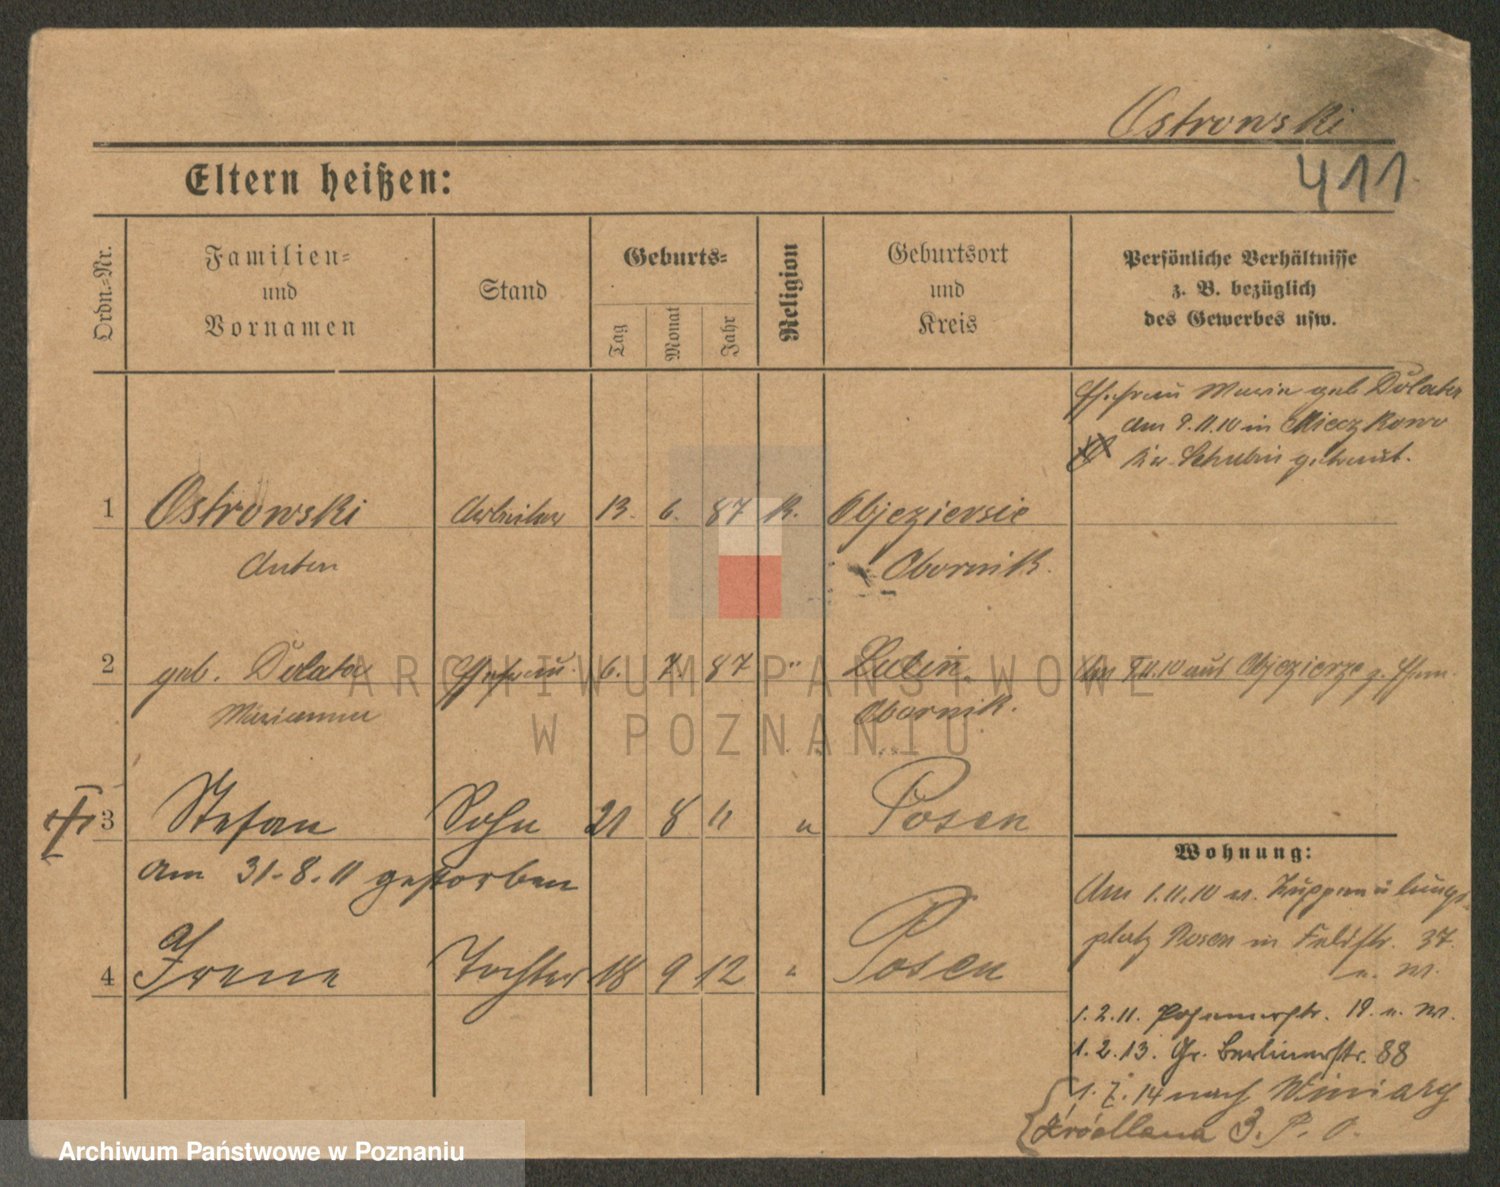 Ostrowski
411
Eltern heißen:
Ordn.-Nr.
Familien-
und
Vornamen
Stand
Geburts-
Tag
Monat
Jahr
Religion
Geburtsort
und
Kreis
Persönliche Verhältnisse
z. B. bezüglich
des Gewerbes usw.
Ehefrau Maria geb Dolata
am 9.11.10 in Mieczkowo
Kr. Schubin getraut.
1 Ostrowski Arbeiter 13. 6. 87 K. Objezierzie
Anton Obornik.
2 geb. Dolata Ehefrau 6. 7. 87 " Lulin.
Am 9.11.10 aus Objezierze z. Ehem.
Marianna Obornik.
3 Stefan Sohn 21 8 11 " Posen
am 31.8.11 gestorben
4 Irene Tochter 18 9 12 " Posen
Wohnung:
Am 1.11.10 v. Truppenübungs-
platz Posen in Feldstr. 37.
n. M.
1.2.11. Posenerstr. 19. n. M.
1.2.13. Gr. Berlinerstr. 88
1.7.14 nach Winiary
Zródlana 3. P. O.
ARCHIWUM PAŃSTWOWE
W POZNANIU
Archiwum Państwowe w Poznaniu